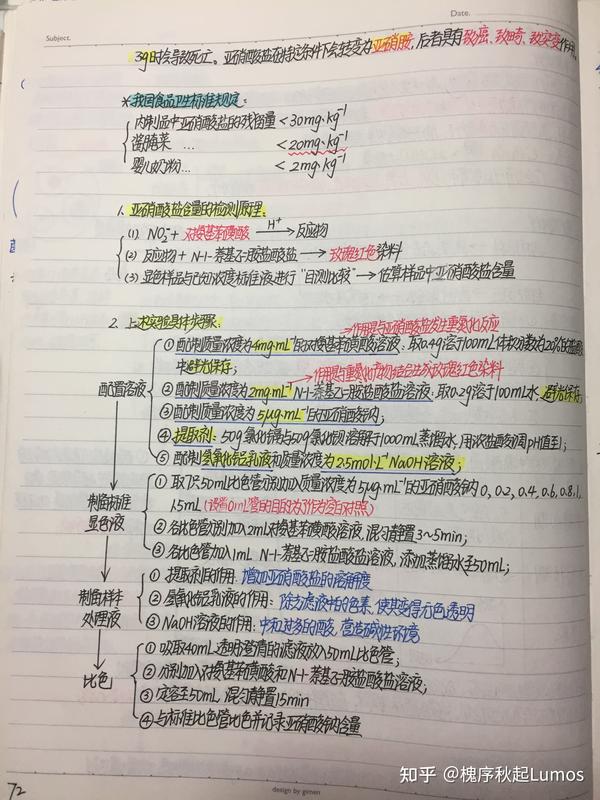 Subject.
Date.
3g时会导致死亡。亚硝酸盐在特定条件下会转变为亚硝胺,后者具有致癌、致畸、致突变作用。
*我国食品卫生标准规定:
肉制品中亚硝酸盐的残留量 <30mg·kg⁻¹
酱腌菜 … <20mg·kg⁻¹
婴儿奶粉… <2mg·kg⁻¹
1. 亚硝酸盐含量的检测原理:
(1) NO₂⁻+ 对氨基苯磺酸 —H⁺→ 反应物
(2) 反应物 + N-1-萘基乙二胺盐酸盐 → 玫瑰红色染料
(3) 显色样品与已知浓度标准液进行“目测比较”→估算样品中亚硝酸盐含量
2. 上述实验具体步骤:
→作用是与亚硝酸盐发生重氮化反应
①配制质量浓度为4mg·mL⁻¹的对氨基苯磺酸溶液:取0.4g溶于100mL体积分数为20%的盐酸
中避光保存;
→作用是与重氮化产物结合生成玫瑰红色染料
配置溶液
②配制质量浓度为2mg·mL⁻¹ N-1-萘基乙二胺盐酸盐溶液:取0.2g溶于100mL水,避光保存;
③配制质量浓度为5μg·mL⁻¹的亚硝酸钠;
④提取剂:50g氯化镉与50g氯化钡溶解于1000mL蒸馏水,用浓盐酸调pH值至1;
⑤配制氢氧化铝乳液和质量浓度为2.5mol·L⁻¹ NaOH溶液;
①取7只50mL比色管分别加入质量浓度为5μg·mL⁻¹的亚硝酸钠0, 0.2, 0.4, 0.6, 0.8, 1,
1.5mL(设置0mL管的目的为了作为空白对照)
制备标准
显色液
②各比色管分别加入2mL对氨基苯磺酸溶液,混匀静置3~5min;
③各比色管加入1mL N-1-萘基乙二胺盐酸盐溶液,添加蒸馏水至50mL;
制备样本
处理液
①提取剂的作用:增加亚硝酸盐的溶解度
②氢氧化铝乳液的作用:除去滤液中的色素,使其变得无色透明
③NaOH溶液的作用:中和过多的酸,营造碱性环境
比色
①吸取40mL透明澄清的滤液放入50mL比色管;
②分别加入对氨基苯磺酸和N-1-萘基乙二胺盐酸盐溶液;
③定容至50mL,混匀静置15min
④与标准比色管比色并记录亚硝酸钠含量
72
design by gimen
知乎 @槐序秋起Lumos